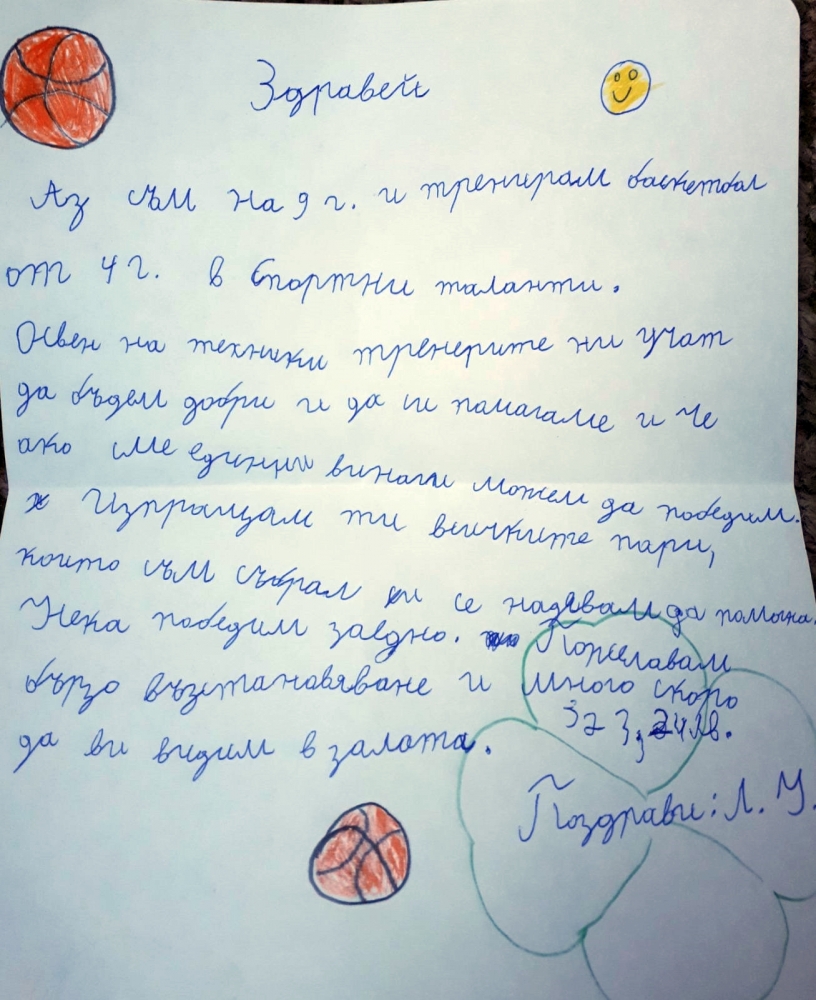 Здравей
Аз съм на 9 г. и тренирам баскетбол
от 4 г. в Спортни таланти.
Освен на техники тренерите ни учат
да бъдем добри и да си помагаме и че
ако сме единни винаги можем да победим.
Изпращам ти всичките пари,
които съм събрал и се надявам да помогна.
Нека победим заедно. Пожелавам
бързо възстановяване и много скоро
да ви видим в залата.
Поздрави: Л. У.